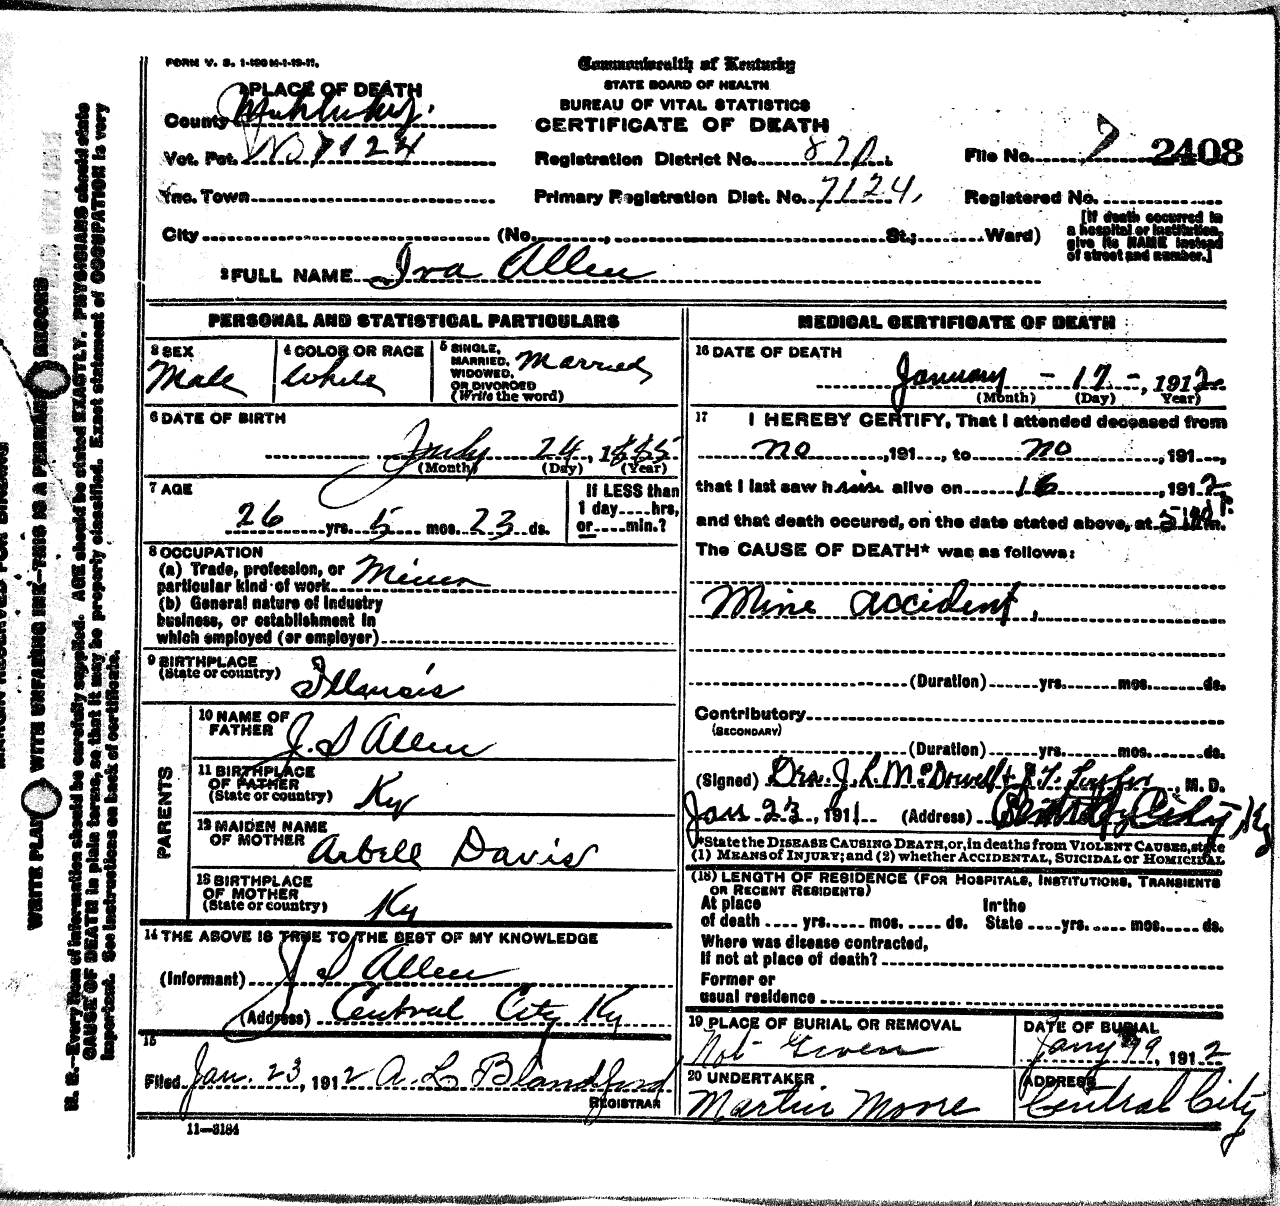 FORM V. S. 1-120 M-1-19-11.
Commonwealth of Kentucky
STATE BOARD OF HEALTH
BUREAU OF VITAL STATISTICS
CERTIFICATE OF DEATH
1 PLACE OF DEATH
County
Vot. Pct. No 7124
Inc. Town
City (No. , St.; Ward)
Registration District No. 870.
Primary Registration Dist. No. 7124.
File No. 2408
Registered No.
[If death occurred in
a hospital or institution,
give its NAME instead
of street and number.]
2 FULL NAME Iva Allen
PERSONAL AND STATISTICAL PARTICULARS
3 SEX
Male
4 COLOR OR RACE
White
5 SINGLE,
MARRIED,
WIDOWED,
OR DIVORCED
(Write the word)
Married
6 DATE OF BIRTH
July 24, 1885
(Month) (Day) (Year)
7 AGE
26 yrs. 5 mos. 23 ds.
If LESS than
1 day....hrs,
or....min.?
8 OCCUPATION
(a) Trade, profession, or
particular kind of work Miner
(b) General nature of industry
business, or establishment in
which employed (or employer)
9 BIRTHPLACE
(State or country) Illanois
PARENTS
10 NAME OF
FATHER J. S Allen
11 BIRTHPLACE
OF FATHER
(State or country) Ky
12 MAIDEN NAME
OF MOTHER Arbell Davis
13 BIRTHPLACE
OF MOTHER
(State or country) Ky
14 THE ABOVE IS TRUE TO THE BEST OF MY KNOWLEDGE
(Informant) J S Allen
(Address) Central City Ky
15
Filed Jan. 23, 1912 A. L Blandford
REGISTRAR
11—3184
MEDICAL CERTIFICATE OF DEATH
16 DATE OF DEATH
January - 17 -, 1912
(Month) (Day) Year)
17 I HEREBY CERTIFY, That I attended deceased from
no ,191 , to no ,191 ,
that I last saw h alive on 16 , 1912
and that death occured, on the date stated above, at m.
The CAUSE OF DEATH* was as follows:
Mine accident.
(Duration) yrs. mos. ds.
Contributory
(SECONDARY)
(Duration) yrs. mos. ds.
(Signed) Drs. J. L. McDowell + J. T. Taylor, M. D.
Jan. 23, 1911 (Address) Central City, Ky
*State the DISEASE CAUSING DEATH, or, in deaths from VIOLENT CAUSES, state
(1) MEANS of INJURY; and (2) whether ACCIDENTAL, SUICIDAL or HOMICIDAL
(18) LENGTH OF RESIDENCE (FOR HOSPITALS, INSTITUTIONS, TRANSIENTS
OR RECENT RESIDENTS)
At place In the
of death .... yrs. .... mos. .... ds. State .... yrs. .... mos. .... ds.
Where was disease contracted,
If not at place of death?
Former or
usual residence
19 PLACE OF BURIAL OR REMOVAL
Not Given
DATE OF BURIAL
Jany 19, 1912
20 UNDERTAKER
Martin Moore
ADDRESS
Central City
N. B.—Every item of information should be carefully supplied. AGE should be stated EXACTLY. PHYSICIANS should state
CAUSE OF DEATH in plain terms, so that it may be properly classified. Exact statement of OCCUPATION is very
important. See instructions on back of certificate.